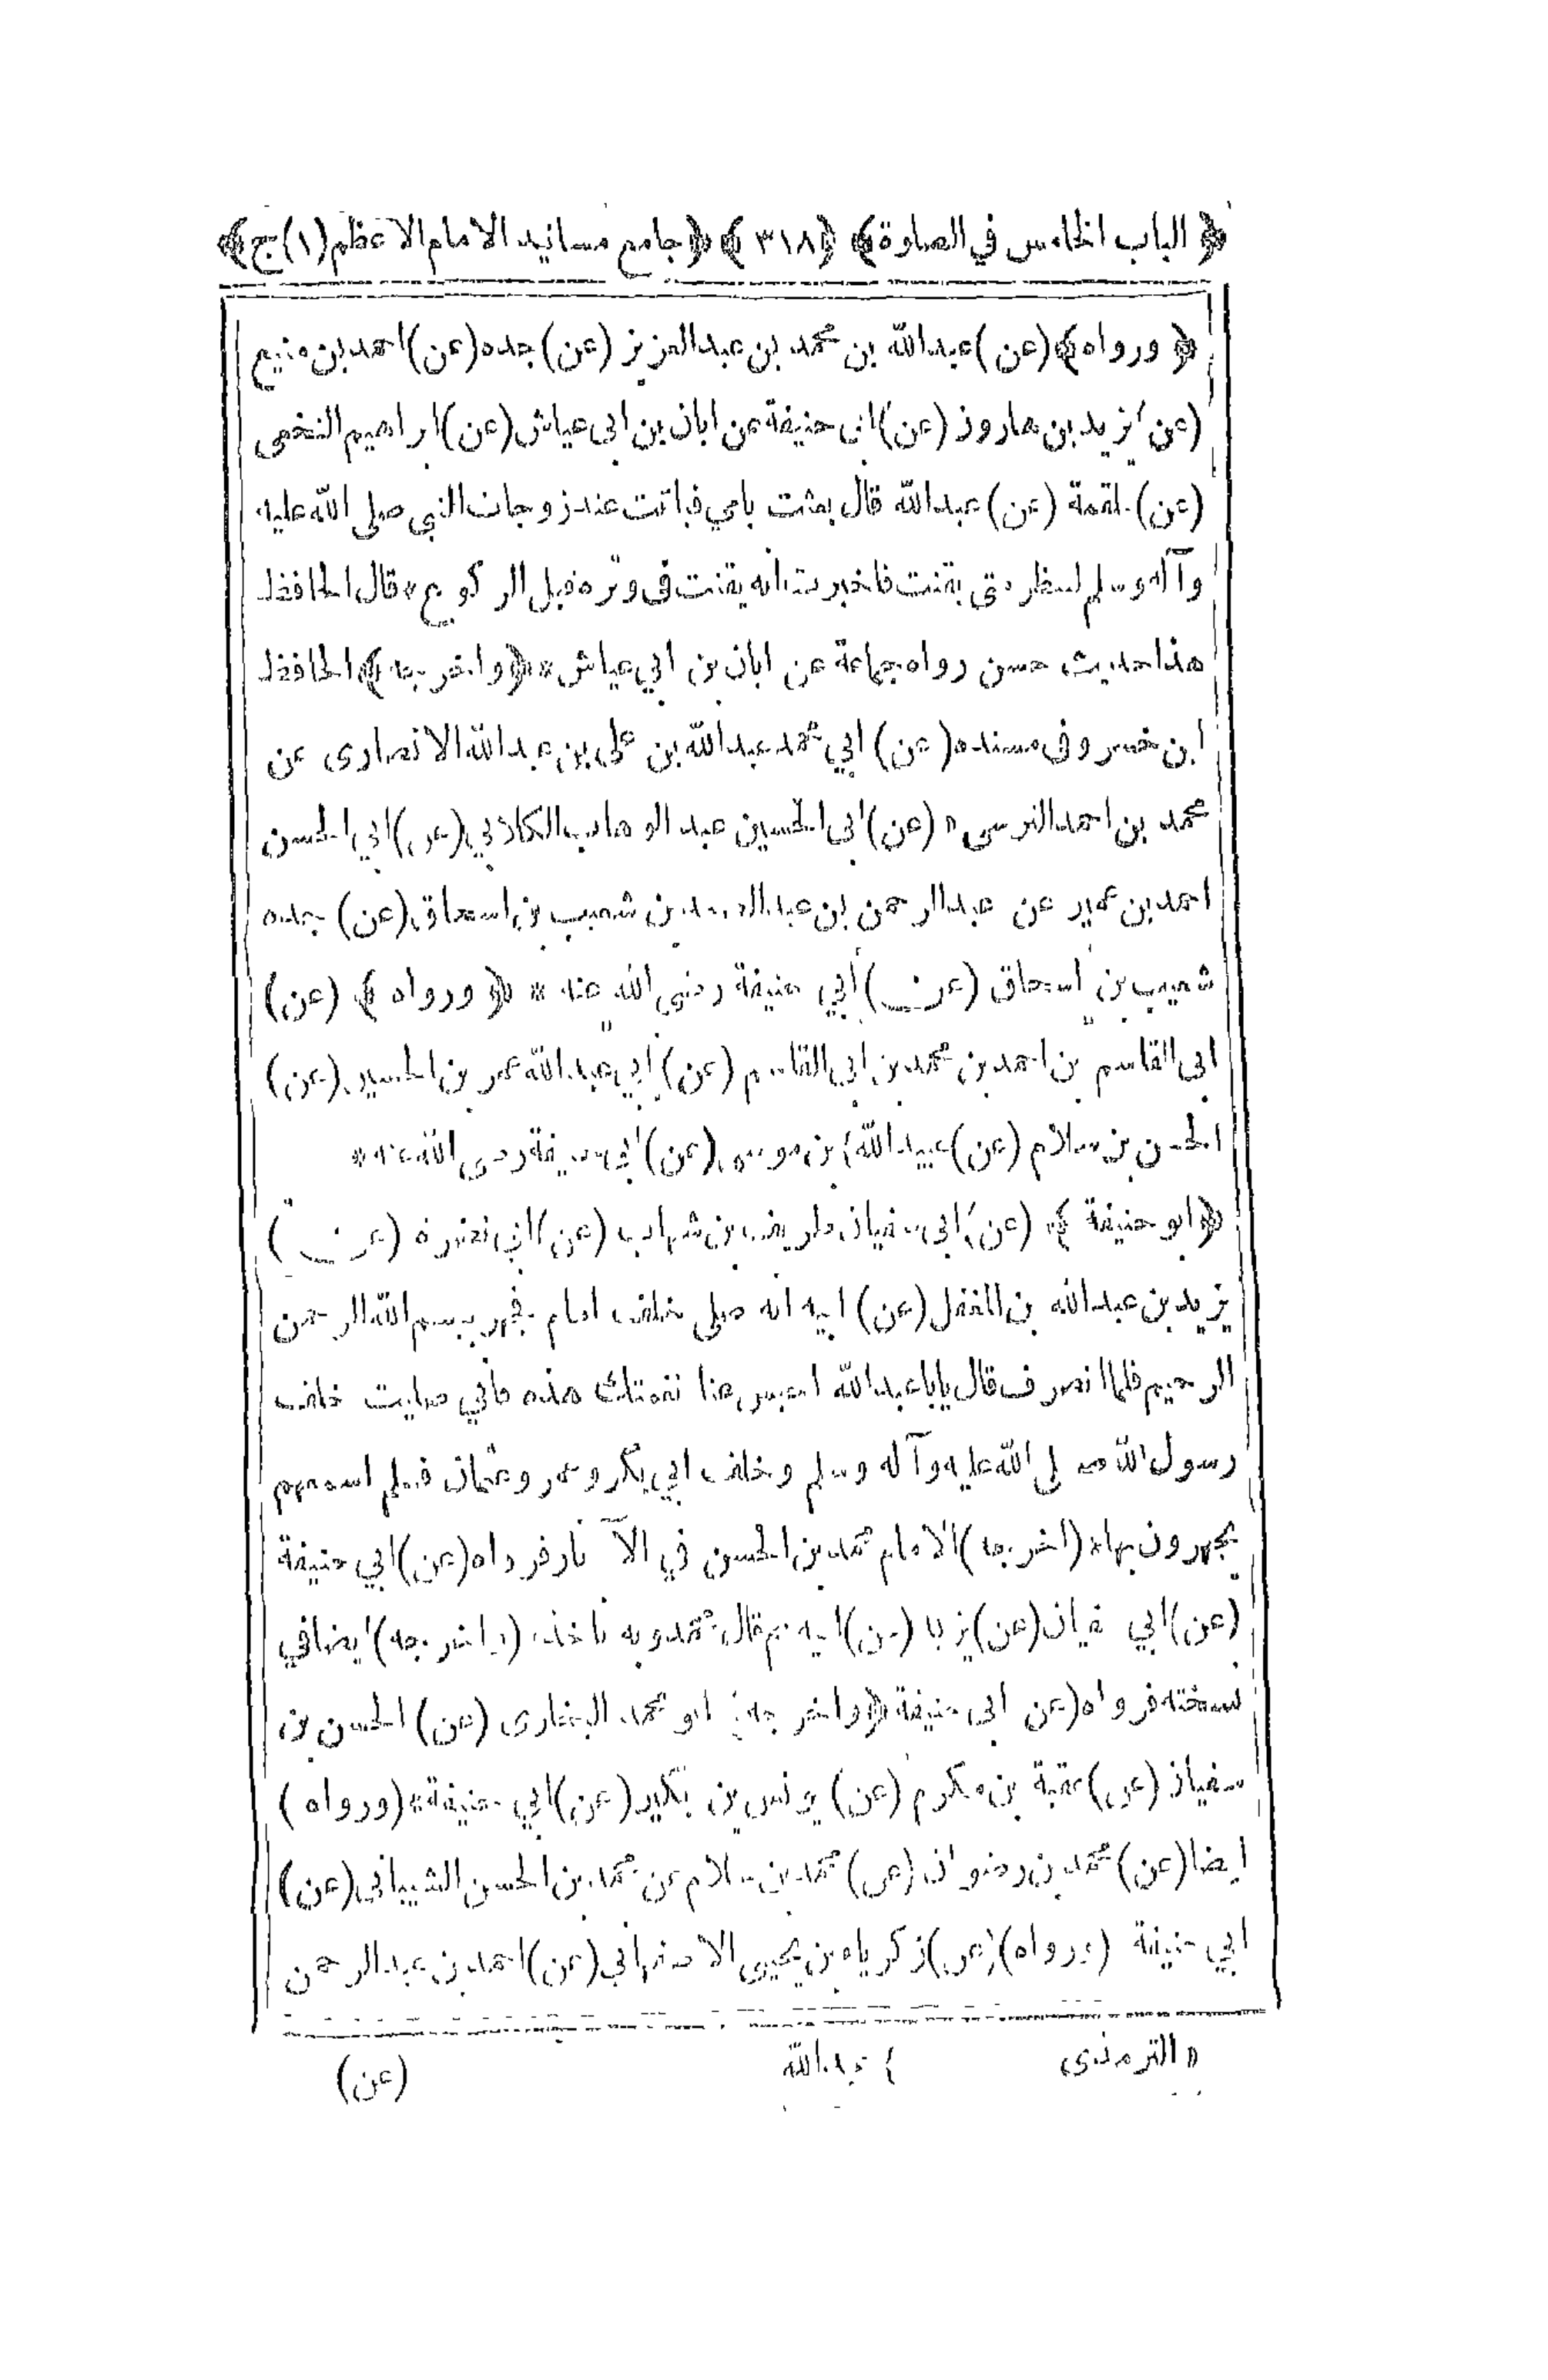 ﴿ الباب الخامس في الصلوة ﴾ ﴿ ٣١٨ ﴾ ﴿ جامع مسانيد الامام الاعظم (١) ج ﴾
﴿ ورواه ﴾ (عن) عبدالله بن محمد بن عبدالعزيز (عن) جده (عن) احمد بن منيع
(عن) يزيد بن هارون (عن) ابى حنيفة عن ابان بن ابى عياش (عن) ابراهيم النخعى
(عن) علقمة (عن) عبدالله قال بعثت بامي فباتت عند زوجات النبي صلى الله عليه
وآله وسلم لتنظر متى يقنت فاخبرت انه يقنت فى وتره قبل الركوع * قال الحافظ
هذا حديث حسن رواه جماعة عن ابان بن ابي عياش * ﴿ واخرجه ﴾ الحافظ
ابن خسرو فى مسنده (عن) ابي محمد عبدالله بن على بن عبدالله الانصارى عن
محمد بن احمد النرسى " (عن) ابى الحسين عبد الوهاب الكلابي (عن) ابي الحسن
احمد بن عمير عن عبدالرحمن بن عبدالصمد بن شعيب بن اسحاق (عن) جده
شعيب بن اسحاق (عن) أبي حنيفة رضى الله عنه * ﴿ ورواه ﴾ (عن)
ابى القاسم بن احمد بن محمد بن ابي القاسم (عن) أبي عبدالله عمر بن الحسين (عن)
الحسن بن سلام (عن) عبيدالله ٤ بن موسى (عن) ابى حنيفة رضى الله عنه *
﴿ ابو حنيفة ﴾ (عن) ابى سفيان طريف بن شهاب (عن) ابي نضرة (عن)
يزيد بن عبدالله بن المغفل (عن) ابيه انه صلى خلف امام يجهر ببسم الله الرحمن
الرحيم فلما انصرف قال يا با عبدالله احبس عنا نغمتك هذه فاني صليت خلف
رسول الله صلى الله عليه وآله وسلم وخلف ابي بكر وعمر وعثمان فلم اسمعهم
يجهرون بها * (اخرجه) الامام محمد بن الحسن في الآثار فرواه (عن) ابي حنيفة
(عن) ابي سفيان (عن) يزيد (عن) ابيه ثم قال محمد وبه ناخذ * (واخرجه) ايضا في
نسخته فرواه (عن ابى حنيفة ﴿ واخرجه ﴾ ابو محمد البخارى (عن) الحسن بن
سفيان (عن) عقبة بن مكرم (عن) يونس بن بكير (عن) ابي حنيفة * (ورواه)
ايضا (عن) محمد بن رضوان (عن) محمد بن سلام عن محمد بن الحسن الشيبانى (عن)
ابي حنيفة (ورواه) (عن) زكرياء بن يحيى الاصفهاني (عن) احمد بن عبدالرحمن
" الترمذى ٤ عبدالله (عن)